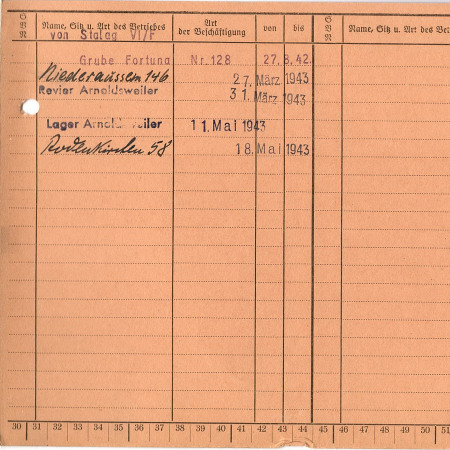 G B N Name, Sitz u. Art des Betriebes Art der Beschäftigung von bis G B N Name, Sitz u. Art des Bet
von Stalag VI/F
Grube Fortuna Nr. 128 27. 8. 42.
Niederaussem 146 27. März 1943
Revier Arnoldsweiler 31. März 1943
Lager Arnoldsweiler 11. Mai 1943
Rodenkirchen 58 18. Mai 1943
30 31 32 33 34 35 36 37 38 39 40 41 42 43 44 45 46 47 48 49 50 51